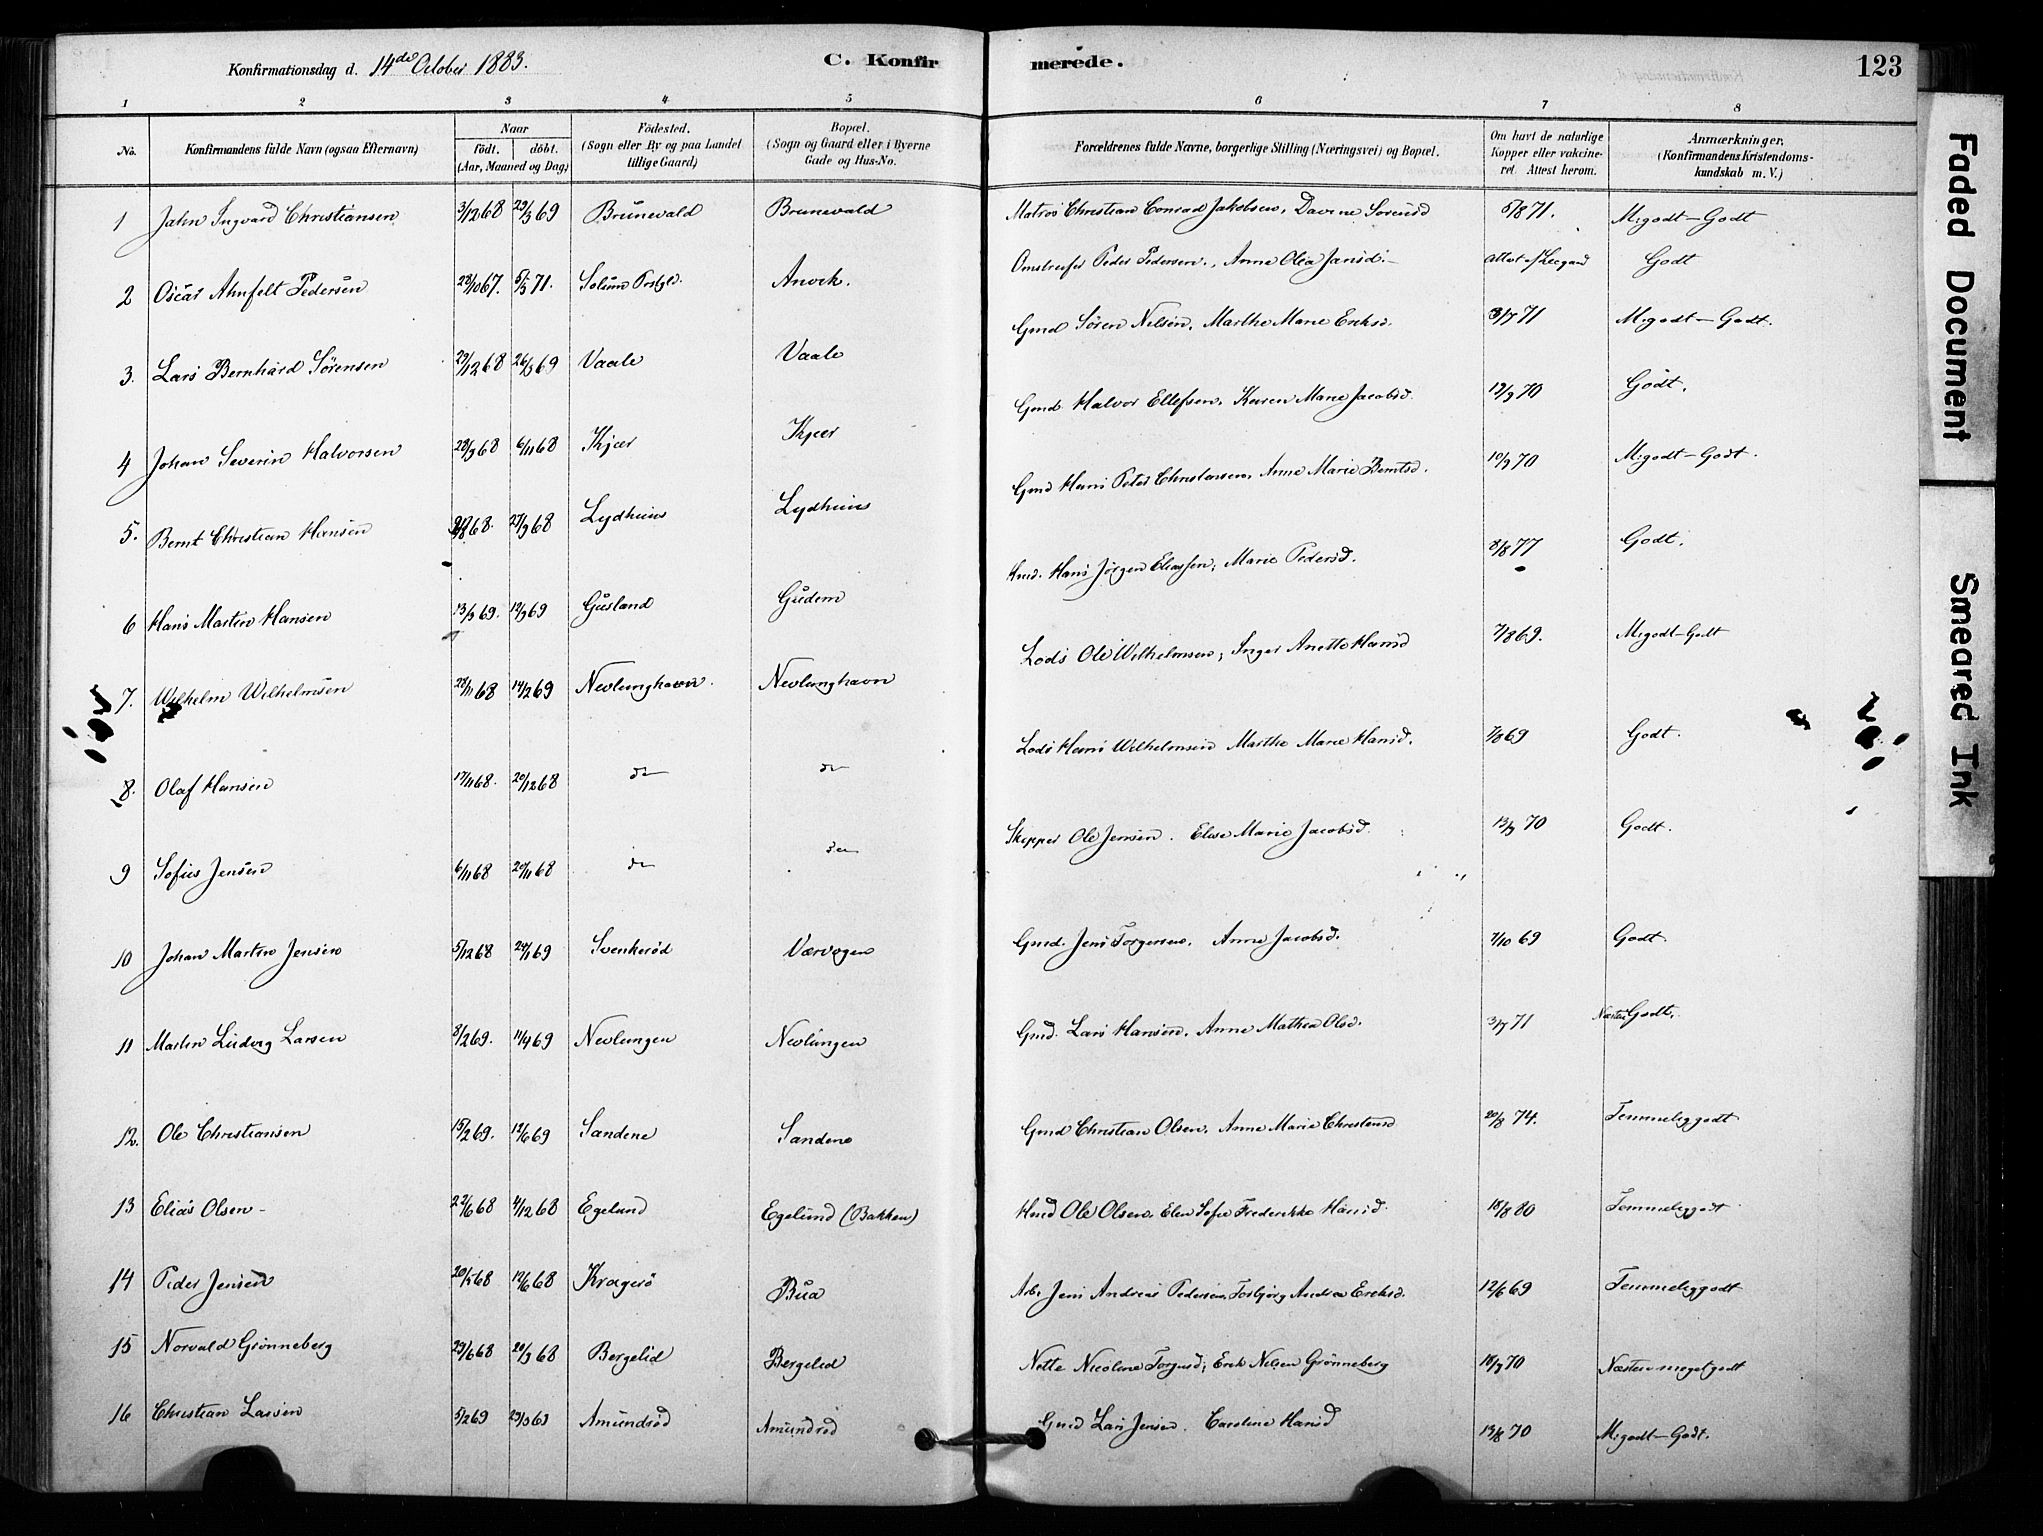 Konfirmationsdag d. 14de October 1883. C. Konfirmerede. 123
1 2 3 4 5 6 7 8
No. Konfirmandens fulde Navn (ogsaa Efternavn) Naar födt. döbt. (Aar, Maaned og Dag) Födested. (Sogn eller By og paa Landet tillige Gaard) Bopæl. (Sogn og Gaard eller i Byerne Gade og Hus-No. Forældrenes fulde Navne, borgerlige Stilling (Næringsvei) og Bopæl. Om havt de naturlige Kopper eller vakcineret. Attest herom. Anmærkninger, (Konfirmandens Kristendomskundskab m. V.)
1 Jahn Ingvard Christiansen 3/12 68 29/3 69 Brunevald Brunevald Matros Christian Conrad Jakobsen, Davine Sorensd 5/8 71. M:godt-Godt
2 Oscar Ahnfelt Pedersen 28/10 67. 5/3 71. Solum Prstgld. Anvik. Omstreifer Peder Pedersen, Anne Olea Jansd. Attest af Godt
3. Lars Bernhard Sörensen 29/12 68 26/3 69 Vaale Vaale Gmd Sören Nilsen, Marthe Marie Eriksd. 3/7 71 M:godt-Godt.
4 Johan Severin Halvorsen 28/9 68 6/11 68 Kjær Kjær Gmd Halvor Ellefsen, Karen Marie Jacobsd. 12/9 70 Godt.
5. Bernt Christian Hansen 68. 27/9 68 Lydhuus Lydhuus Gmd Hans Peter Christensen, Anne Marie Berntsd. 10/9 70 M:godt-Godt.
6 Hans Martin Hansen 13/3 69. 12/9 69 Gusland Gudem Kmd. Hans Jörgen Eliassen, Marie Pedersd. 8/8 77 Godt.
7. Wilhelm Wilhelmsen 28/11 68 14/2 69 Nevlunghavn. Nevlunghavn Lods Ole Wilhelmsen, Inger Anette Hansd 7/8 69. M:godt-Godt
8. Olaf Hansen 17/11 68. 20/12 68 do do Lods Hans Wilhelmsen Marthe Marie Hansd. 7/8 69 Godt.
9 Sofus Jensen 6/11 68 20/11 68 do do Skipper Ole Jensen. Elise Marie Jacobsd. 13/9 70 Godt.
10 Johan Martin Jensen 5/12 68 24/1 69 Svenkeröd Værvagen Gmd. Jens Torgersen. Anne Jacobsd. 7/10 69 Godt.
11 Martin Ludvig Larsen 8/2 69. 11/4 69 Nevlungen Nevlungen Gmd. Lars Hansen, Anne Mathea Olsd. 3/7 71 Næsten Godt.
12. Ole Christiansen 15/2 69. 12/6 69 Sandene Sandene Gmd Christian Olsen, Anne Marie Christensd 20/8 74. Temmeliggodt
13 Elias Olsen 22/6 68 4/12 68 Egelund Egelund (Bakken) Kmd Ole Olsen, Elen Sofie Frederikke Hansd. 18/8 80 Temmeliggodt
14 Peder Jensen 20/1 68 12/6 68 Kragerö Bua Arb. Jens Andreas Pedersen, Torbjörg Andrea Eriksd. 12/6 69 Temmeliggodt
15 Norvald Grönneberg 29/6 68 20/9 68 Bergelid Bergelid Nette Nicoline Torgersd, Erik Nilsen Grönneberg 18/9 70 Næsten meget godt
16 Christian Larsen 5/2 69 29/3 69 Amundröd Amundröd Gmd Lars Jensen. Caroline Hansd 13/8 70 M:godt-Godt.
Faded Document
Smeared Ink